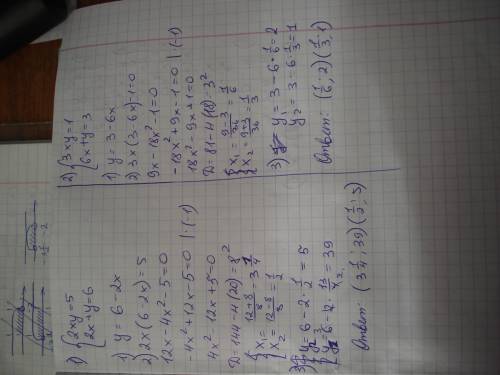 1) {2xy=5
{2x+y=6
1) y=6-2x
2) 2x(6-2x)=5
12x-4x²-5=0
-4x²+12x-5=0 |·(-1)
4x²-12x+5=0
D=144-4(20)=8²
{x₁=12+8/8=3 1/4
{x₂=12-8/8=1/2
y=6-2·1/2=5
y=6-12·13/x₂=39
Ответ: (3 1/4; 39) (1/2; 5)
2) {3xy=1
{6x+y=3
1) y=3-6x
2) 3x(3-6x)-1=0
9x-18x²-1=0
-18x²+9x-1=0 |·(-1)
18x²-9x+1=0
D=81-4(18)=3²
{x₁=9-3/36=1/6
{x₂=9+3/36=1/3
3) y₁=3-6·1/6=2
y₂=3-6·1/3=1
Ответ: (1/6; 2) (1/3; 1)